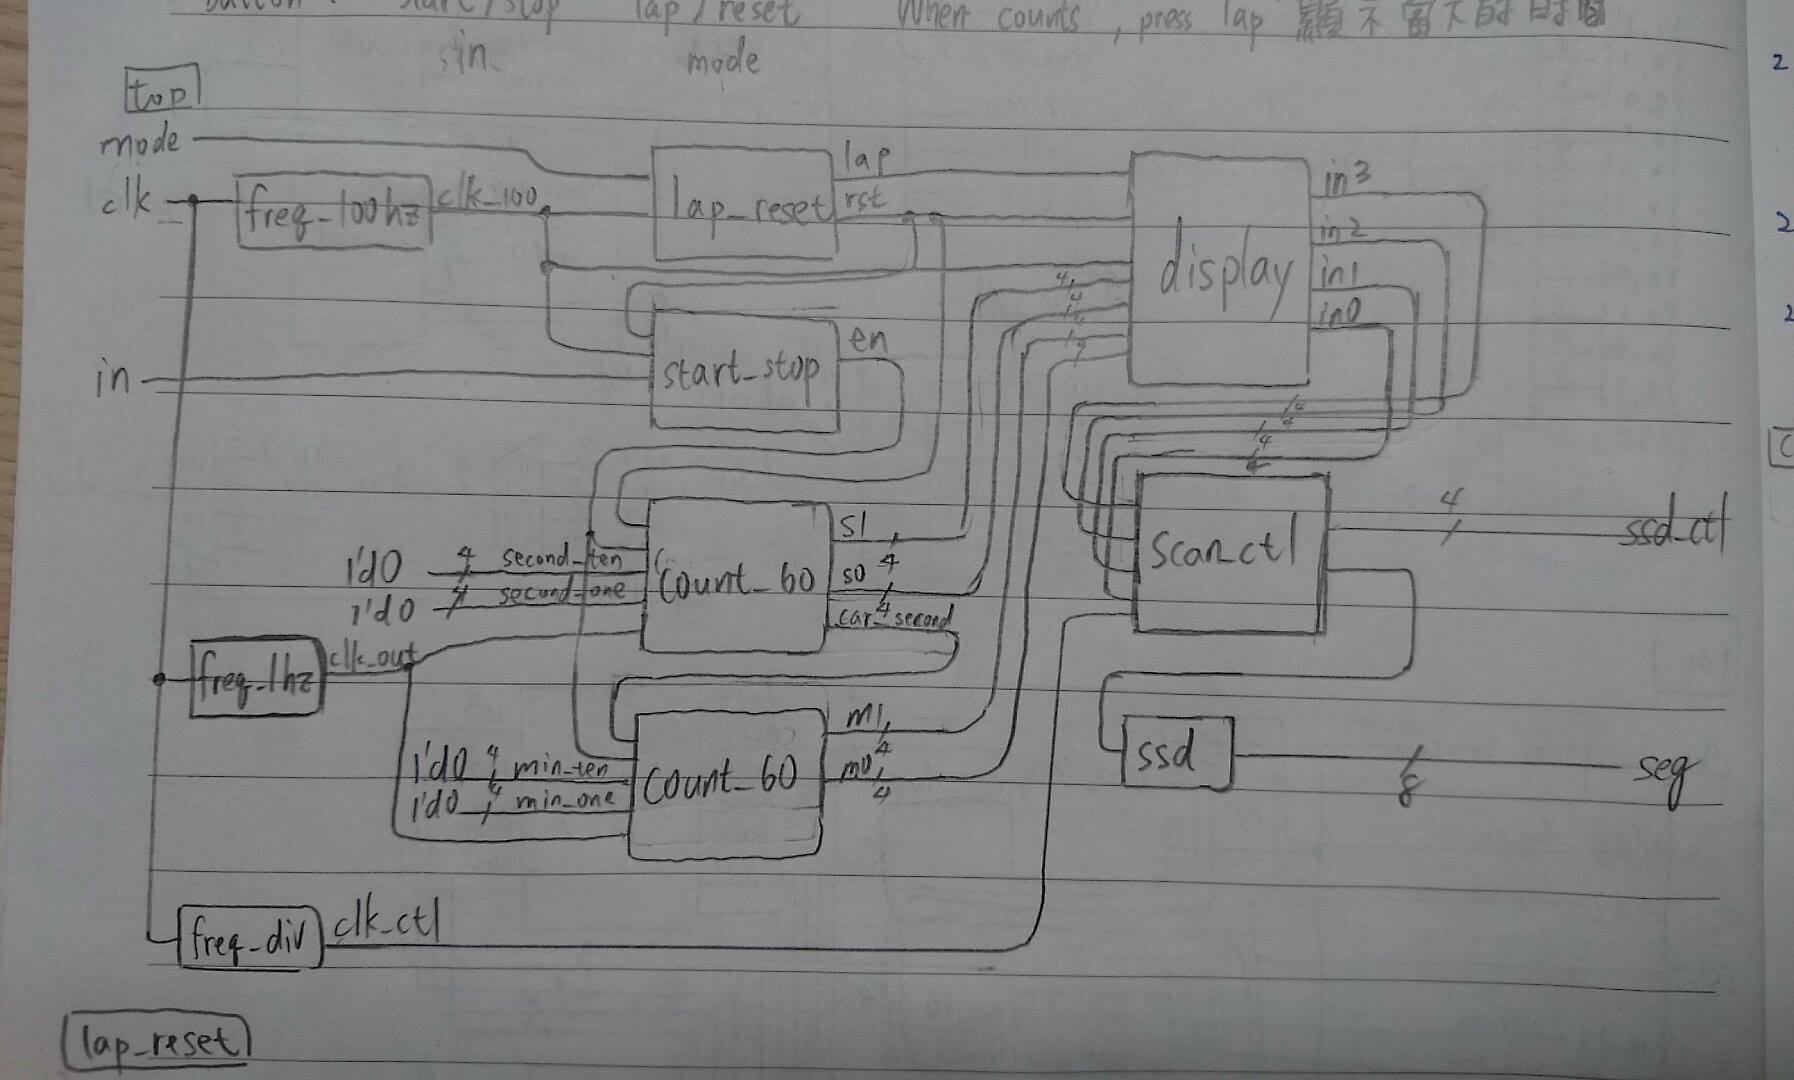 button : start/stop lap/reset When counts, press lap 顯示當下的時間
in mode
top
mode
clk
freq_100hz
clk_100
lap_reset
lap
rst
display
in3
in2
in1
in0
4
4
4
4
in
start_stop
en
4
4
4
4
1'd0 4 second_ten
1'd0 4 second_one
count_60
s1
4
s0
4
car_second
scan_ctl
4
ssd_ctl
freq_1hz
clk_out
1'd0 4 min_ten
1'd0 4 min_one
count_60
m1
4
m0
4
ssd
8
seg
freq_div
clk_ctl
lap_reset
2
2
2